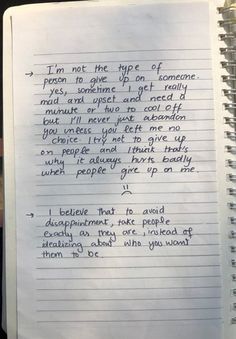 → I'm not the type of
person to give up on someone.
yes, sometime I get really
mad and upset and need a
minute or two to cool off
but I'll never just abandon
you unless you left me no
choice I try not to give up
on people and I think that's
why it always hurts badly
when people give up on me.
→ I believe that to avoid
disappointment, take people
exactly as they are, instead of
idealizing about who you want
them to be.